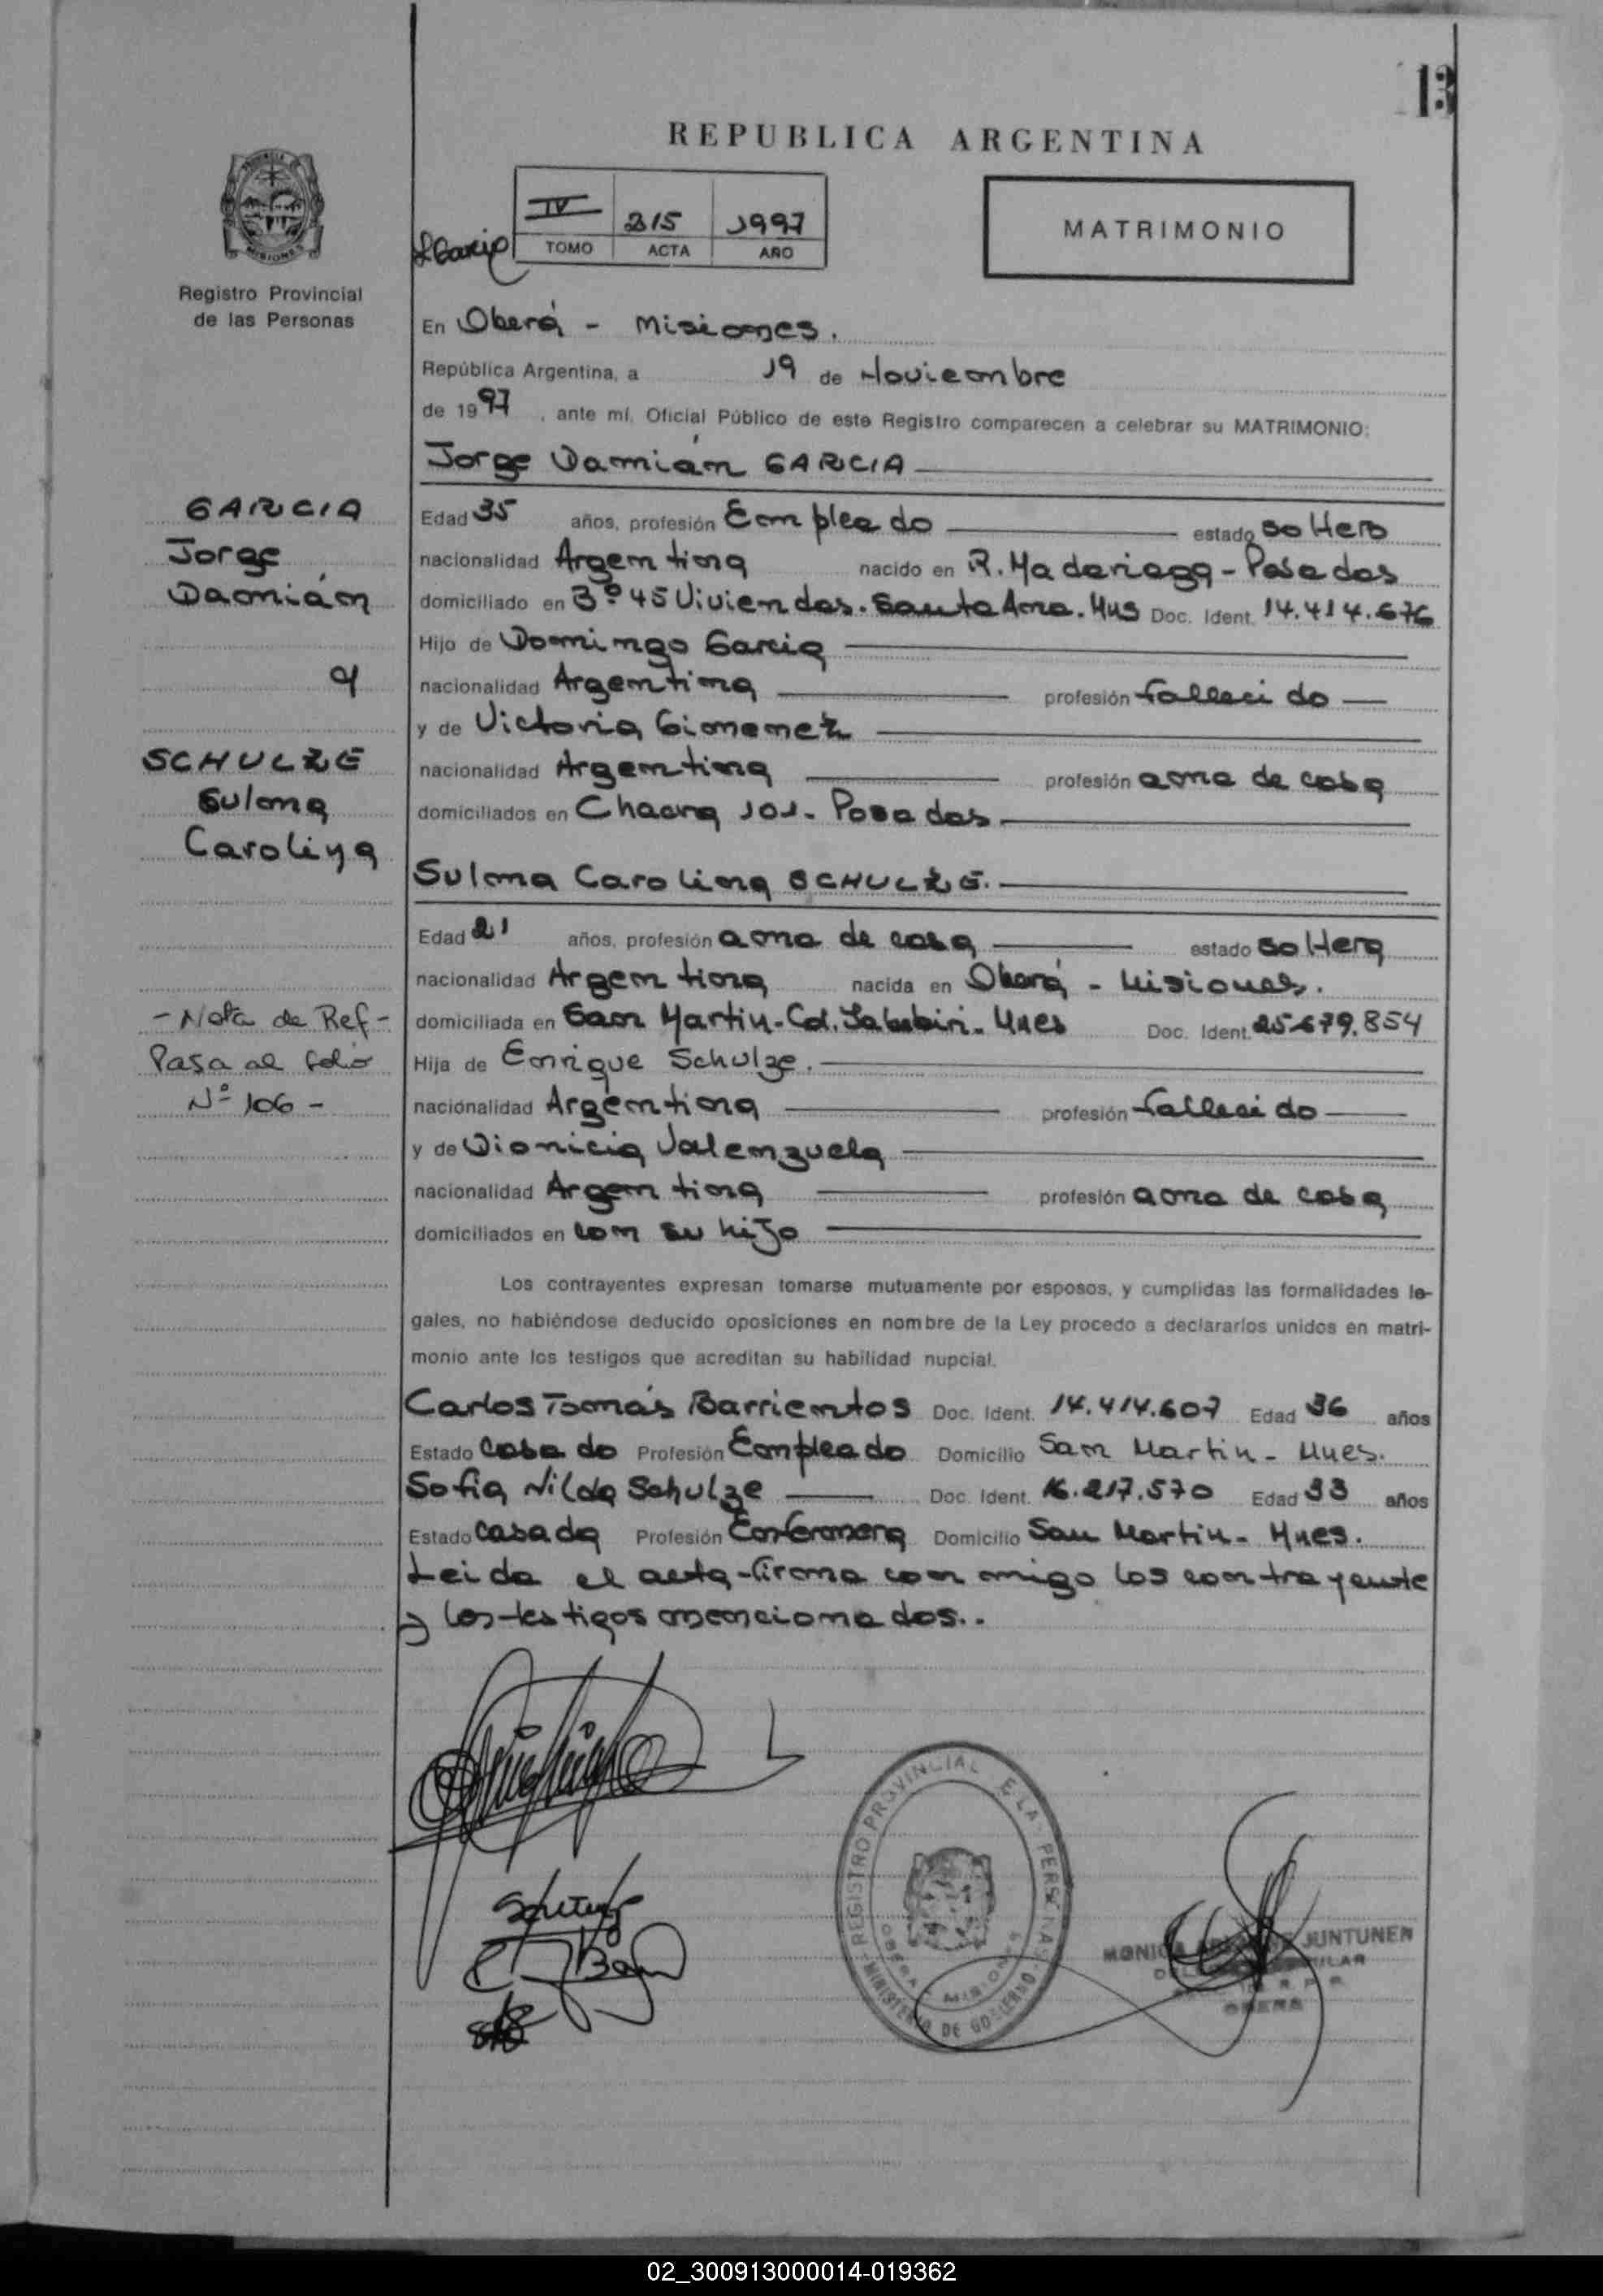 13
REPUBLICA ARGENTINA
IV 315 1997
TOMO ACTA AÑO
MATRIMONIO
Registro Provincial
de las Personas
En Oberá - Misiones.
República Argentina, a 19 de Noviembre
de 1997, ante mí, Oficial Público de este Registro comparecen a celebrar su MATRIMONIO:
Jorge Damián GARCIA
GARCIA
Jorge
Damián
y
SCHULZE
Sulma
Carolina
Edad 35 años, profesión Empleado estado soltero
nacionalidad Argentina nacido en R. Madariaga - Posadas
domiciliado en Bº 45 Viviendas. Santa Ana. Mns Doc. Ident. 14.414.676
Hijo de Domingo Garcia
nacionalidad Argentina profesión fallecido
y de Victoria Gimenez
nacionalidad Argentina profesión ama de casa
domiciliados en Chacra 101 - Posadas
Sulma Carolina SCHULZE.
Edad 21 años, profesión ama de casa estado soltera
nacionalidad Argentina nacida en Oberá - Misiones.
domiciliada en San Martin - Col. Mnes Doc. Ident. 25.679.854
Hija de Enrique Schulze.
nacionalidad Argentina profesión fallecido
y de Dionicia Valenzuela
nacionalidad Argentina profesión ama de casa
domiciliados en con su hijo
- Nota de Ref -
Pasa al folio
Nº 106 -
Los contrayentes expresan tomarse mutuamente por esposos, y cumplidas las formalidades le-
gales, no habiéndose deducido oposiciones en nombre de la Ley procedo a declararlos unidos en matri-
monio ante los testigos que acreditan su habilidad nupcial.
Carlos Tomás Barrientos Doc. Ident. 14.414.607 Edad 36 años
Estado Casado Profesión Empleado Domicilio San Martin - Mnes.
Sofia Nilda Schulze Doc. Ident. 16.217.570 Edad 33 años
Estado Casada Profesión Enfermera Domicilio San Martin - Mnes.
Leida el acta - firma con migo los contrayente
y los testigos mencionados..
REGISTRO PROVINCIAL E LA PERSONAS
MINISTERIO DE GOBIERNO
OBERA MISIONES
MONICA JUNTUNEN
OBERA
02_300913000014-019362